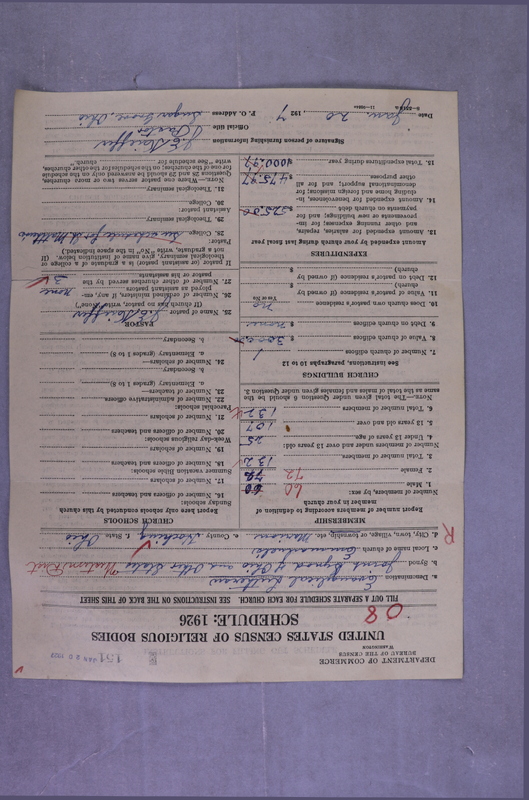 DEPARTMENT OF COMMERCE
BUREAU OF THE CENSUS
WASHINGTON
151
UNITED STATES CENSUS OF RELIGIOUS BODIES
SCHEDULE: 1926
08
FILL OUT A SEPARATE SCHEDULE FOR EACH CHURCH. SEE INSTRUCTIONS ON THE BACK OF THIS SHEET
a. Denomination Evangelical Lutheran
b. Synod Joint Synod of Ohio and Other States
c. Local name of church Emmanuels
d. City, town, village, or township, etc. Marion e. County Hocking f. State Ohio
R
MEMBERSHIP
Report number of members according to definition of
member in your church
Number of members, by sex:
1. Male 60
2. Female 72
3. Total number of members 132
Number of members under and over 13 years old:
4. Under 13 years of age 25
5. 13 years old and over 107
6. Total number of members 132
NOTE.—The total given under question 6 should be the
same as the total of males and females given under question 3.
CHURCH BUILDINGS
See instructions, paragraphs 10 to 12
7. Number of church edifices 1
8. Value of church edifices $
9. Debt on church edifices $ none
10. Does church own pastor's residence no
Yes or No
11. Value of pastor's residence (if owned by
church) $
12. Debt on pastor's residence (if owned by
church) $
EXPENDITURES
Amount expended by your church during last fiscal year
13. Amount expended for salaries, repairs,
and other running expenses; for im-
provements or new buildings; and for
payments on church debt
14. Amount expended for benevolences, in-
cluding home and foreign missions; for
denominational support; and for all
other purposes
15. Total expenditures during year
CHURCH SCHOOLS
Report here only schools conducted by this church
Sunday schools:
16. Number of officers and teachers
17. Number of scholars
Summer vacation Bible schools:
18. Number of officers and teachers
19. Number of scholars
Week-day religious schools:
20. Number of officers and teachers
21. Number of scholars
Parochial schools:
22. Number of administrative officers
23. Number of teachers—
a. Elementary (grades 1 to 8)
b. Secondary
24. Number of scholars—
a. Elementary (grades 1 to 8)
b. Secondary
PASTOR
25. Name of pastor
(If church has no pastor, write "None")
26. Number of ordained ministers, if any, em-
ployed as assistant pastors none
27. Number of other churches served by the
pastor or his assistants 3
If pastor (or assistant pastor) is a graduate of a college or
theological seminary, give name of institution below. (If
not a graduate, write "No" in the space indicated.)
Pastor:
28. College
29. Theological seminary
Assistant pastor:
30. College
31. Theological seminary
NOTE.—Where one pastor serves two or more churches,
questions 28 and 29 should be answered only on the schedule
for one of the churches; on the schedules for the other churches,
write "See schedule for church."
Signature of person furnishing information
Official title Pastor
Date Jan 20, 1927 P. O. Address Sugar Grove, Ohio